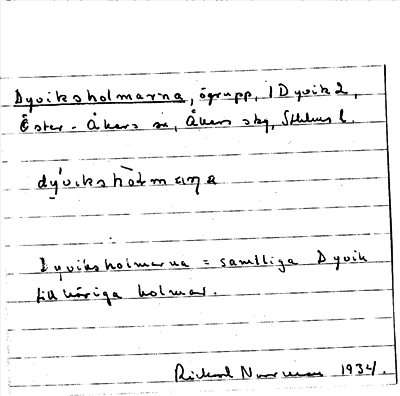 Dyviksholmarna, ögrupp, i Dyvik 2,
Öster-Åkers sn, Åkers skg, Sthlms l.
Dyviksholmarna = samtliga Dyvik
tillhöriga holmar.
Rickard 1934.